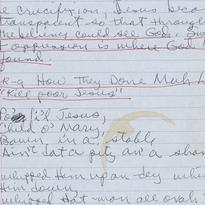 e crucifixion, Jesus beca
transparent so that through
the believer could see God. Sin
oppression is where God
found.
k-g How They Done Muh L
"Kill poor Jesus"
Po' li'l Jesus,
Child o' Mary,
Bawn in a stable
Ain't dat a pity an' a sham
whipped Him up on dey
Him down,
whipped Dat man all ovah